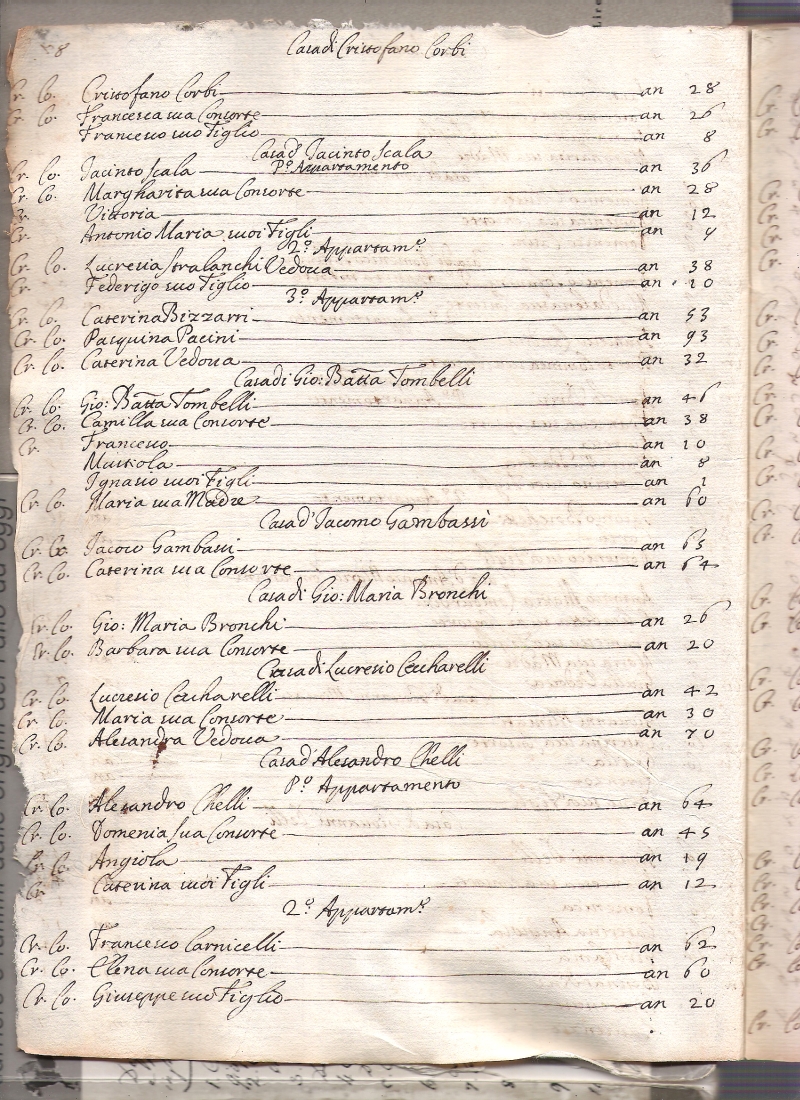 8
Casa di Cristofano Corbi
Cr. Co. Cristofano Corbi an 28
Cr. Co. Francesca sua Consorte an 26
Francesco suo Figlio an 8
Casa d'Jacinto Scala
P.º Appartamento
Cr. Co. Jacinto Scala an 36
Cr. Co. Margharita sua Consorte an 28
Cr. Vittoria an 12
Cr. Antonio Maria suoi Figli an 9
2.º Appartam.º
Cr. Co. Lucresia Stralanchi Vedova an 38
Cr. Federigo suo Figlio an 10
3.º Appartam.º
Cr. Co. Caterina Bizzarri an 53
Cr. Co. Pasquina Pacini an 93
Cr. Co. Caterina Vedova an 32
Casa di Gio: Batta Tombelli
Cr. Co. Gio: Batta Tombelli an 46
Cr. Co. Camilla sua Consorte an 38
Cr. Francesco an 10
Mustiola an 8
Ignasio suoi Figli an 1
Cr. Co. Maria sua Madre an 60
Casa d'Jacomo Gambassi
Cr. Co. Jacomo Gambassi an 65
Cr. Co. Caterina sua Consorte an 64
Casa di Gio: Maria Bronchi
Cr. Co. Gio: Maria Bronchi an 26
Cr. Co. Barbara sua Consorte an 20
Casa di Lucresio Ceccharelli
Cr. Co. Lucresio Ceccharelli an 42
Cr. Co. Maria sua Consorte an 30
Cr. Co. Alesandra Vedova an 70
Casa d'Alesandro Chelli
P.º Appartamento
Cr. Co. Alesandro Chelli an 64
Cr. Co. Domenia sua Consorte an 45
Cr. Co. Angiola an 19
Cr. Caterina suoi Figli an 12
2.º Appartam.º
Cr. Co. Francesco Carnicelli an 62
Cr. Co. Elena sua Consorte an 60
Cr. Co. Giuseppe suo Figlio an 20